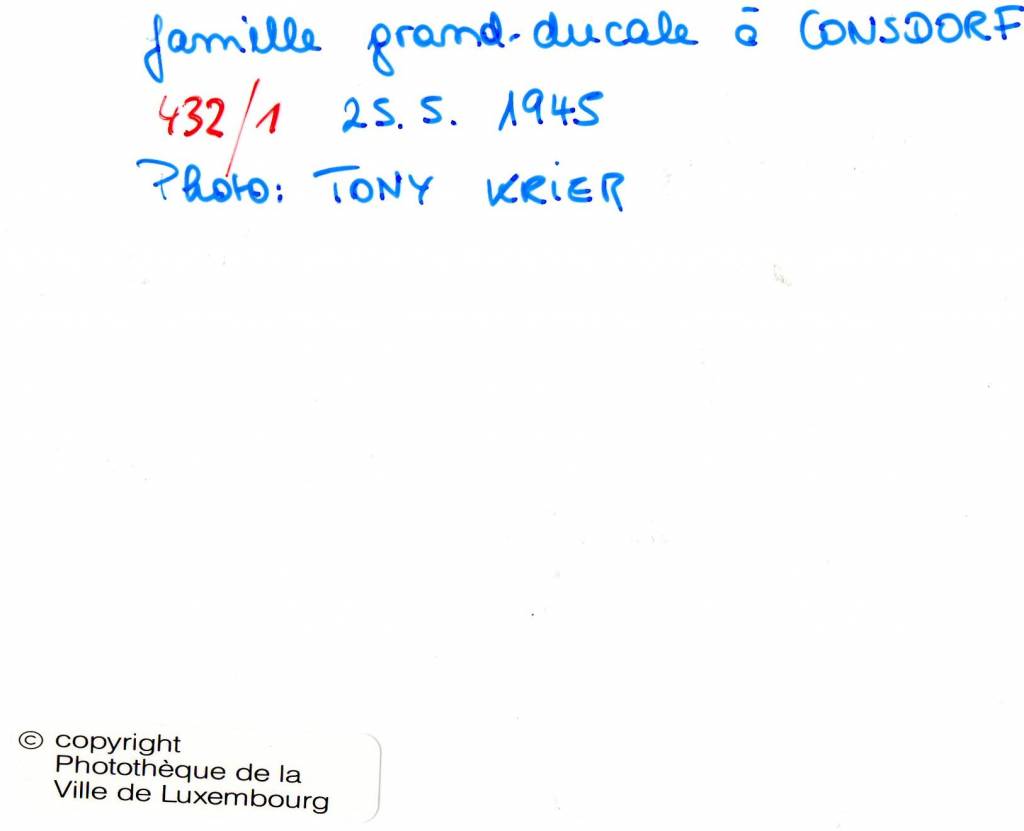 famille grand-ducale à CONSDORF
432/1 25.5. 1945
Photo: TONY KRIER
© copyright
Photothèque de la
Ville de Luxembourg